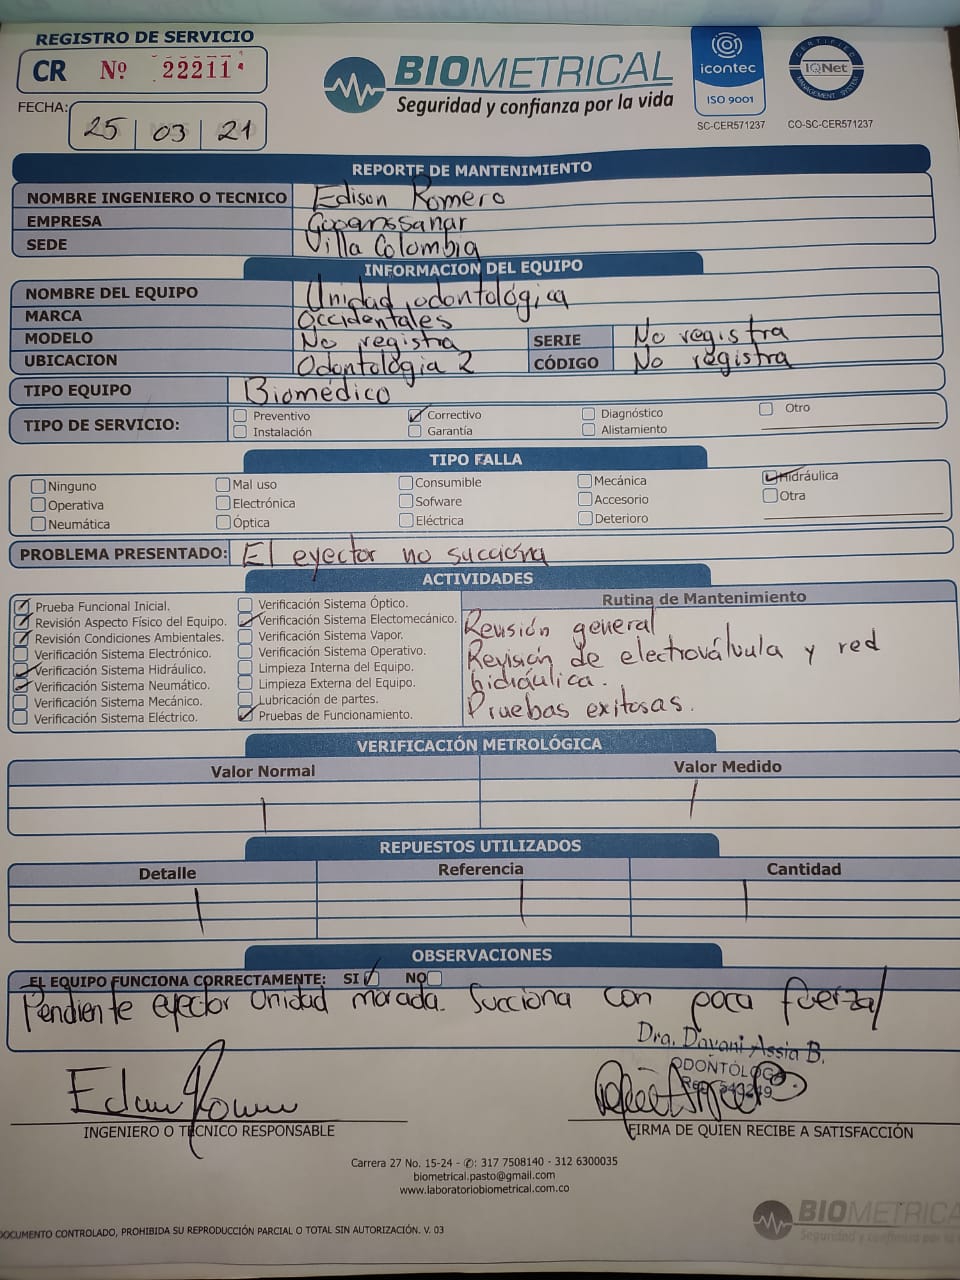 REGISTRO DE SERVICIO
CR Nº 22211
FECHA: 25 03 21
BIOMETRICAL
Seguridad y confianza por la vida
icontec
ISO 9001
SC-CER571237
CERTIFIED
IQNet
MANAGEMENT SYSTEM
CO-SC-CER571237
REPORTE DE MANTENIMIENTO
NOMBRE INGENIERO O TECNICO Edison Romero
EMPRESA
SEDE Villa Colombia
INFORMACION DEL EQUIPO
NOMBRE DEL EQUIPO Unidad odontológica
MARCA Occidentales
MODELO No registra SERIE No registra
UBICACION Odontologia 2 CÓDIGO No registra
TIPO EQUIPO Biomédico
TIPO DE SERVICIO: Preventivo Correctivo Diagnóstico Otro
Instalación Garantía Alistamiento
TIPO FALLA
Ninguno Mal uso Consumible Mecánica Hidráulica
Operativa Electrónica Sofware Accesorio Otra
Neumática Óptica Eléctrica Deterioro
PROBLEMA PRESENTADO: El eyector no succiona
ACTIVIDADES
Prueba Funcional Inicial.
Revisión Aspecto Físico del Equipo.
Revisión Condiciones Ambientales.
Verificación Sistema Electrónico.
Verificación Sistema Hidráulico.
Verificación Sistema Neumático.
Verificación Sistema Mecánico.
Verificación Sistema Eléctrico.
Verificación Sistema Óptico.
Verificación Sistema Electomecánico.
Verificación Sistema Vapor.
Verificación Sistema Operativo.
Limpieza Interna del Equipo.
Limpieza Externa del Equipo.
Lubricación de partes.
Pruebas de Funcionamiento.
Rutina de Mantenimiento
Revisión general
Revisión de electroválvula y red
hidráulica.
Pruebas exitosas.
VERIFICACIÓN METROLÓGICA
Valor Normal Valor Medido
REPUESTOS UTILIZADOS
Detalle Referencia Cantidad
OBSERVACIONES
EL EQUIPO FUNCIONA CORRECTAMENTE: SI NO
Pendiente eyector Unidad morada. Succiona con poca fuerza
Dra. Davani Assia B.
ODONTÓLOGA
INGENIERO O TECNICO RESPONSABLE
FIRMA DE QUIEN RECIBE A SATISFACCIÓN
Carrera 27 No. 15-24 - ✆: 317 7508140 - 312 6300035
biometrical.pasto@gmail.com
www.laboratoriobiometrical.com.co
DOCUMENTO CONTROLADO, PROHIBIDA SU REPRODUCCIÓN PARCIAL O TOTAL SIN AUTORIZACIÓN. V. 03
BIOMETRICA
Seguridad y confianza por la